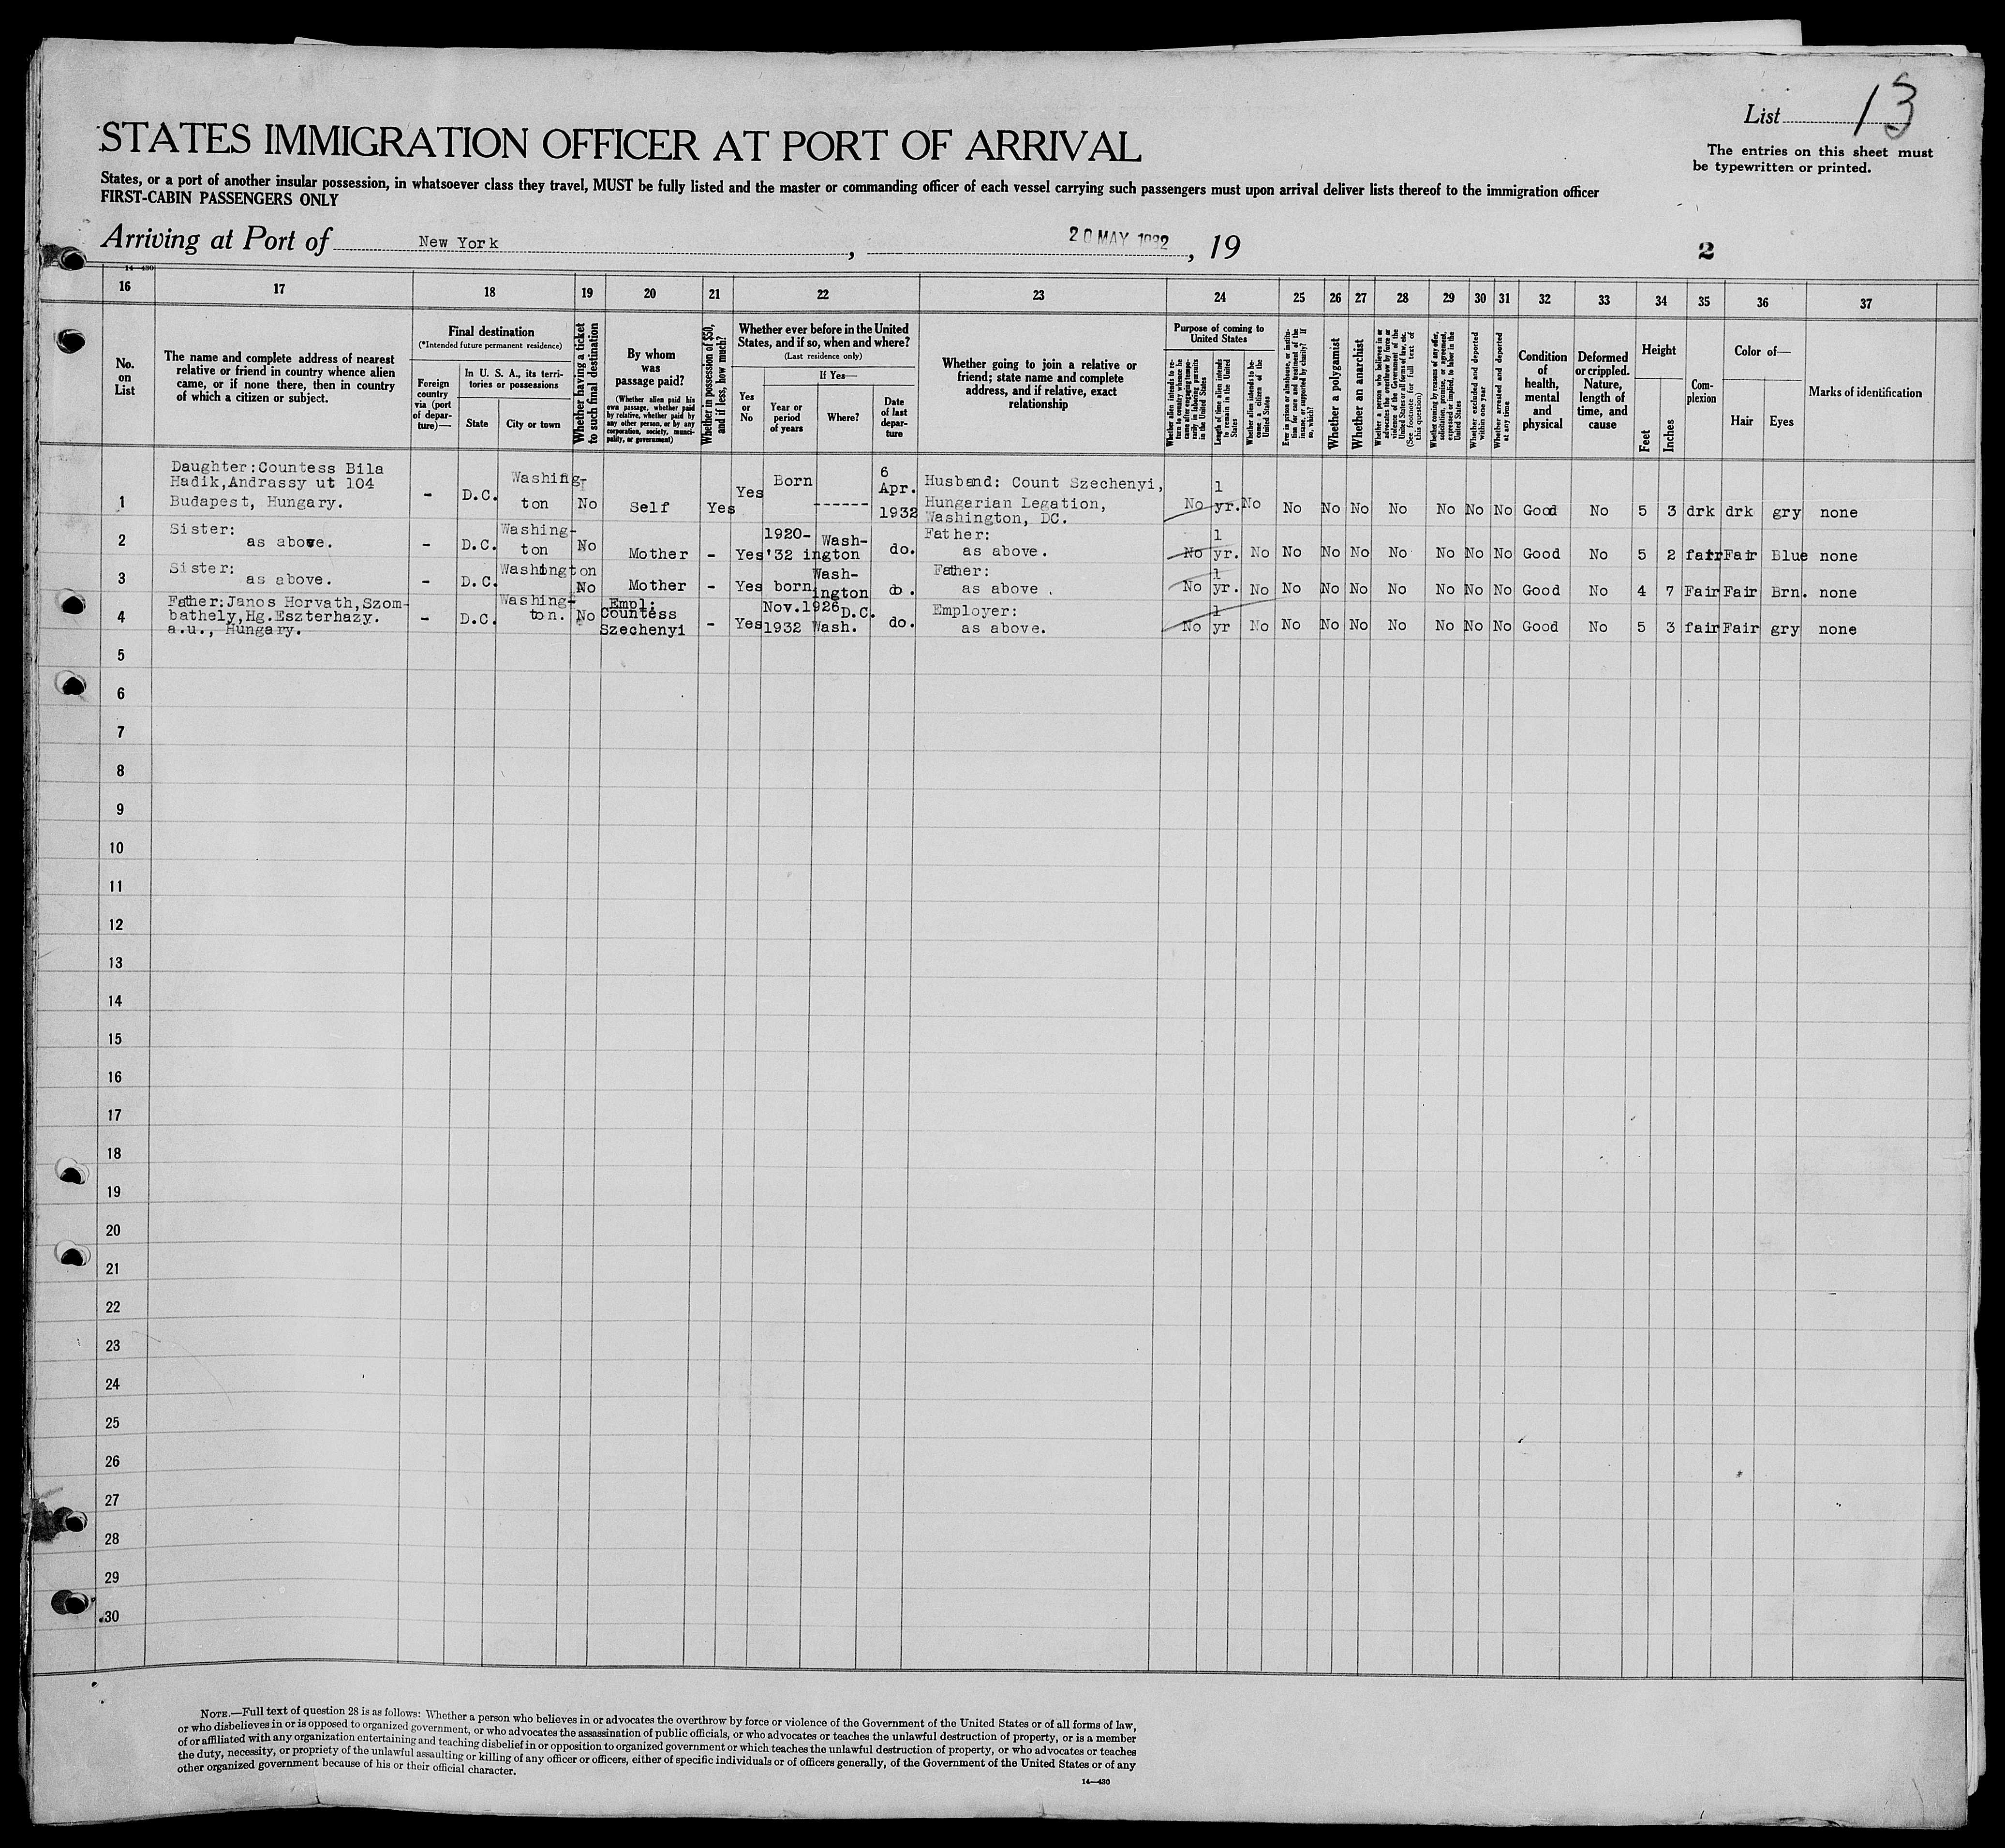 List 13
The entries on this sheet must
be typewritten or printed.
STATES IMMIGRATION OFFICER AT PORT OF ARRIVAL
States, or a port of another insular possession, in whatsoever class they travel, MUST be fully listed and the master or commanding officer of each vessel carrying such passengers must upon arrival deliver lists thereof to the immigration officer
FIRST-CABIN PASSENGERS ONLY
Arriving at Port of New York, 20 MAY 1932, 19 2
14—430
16 17 18 19 20 21 22 23 24 25 26 27 28 29 30 31 32 33 34 35 36 37
No.
on
List
The name and complete address of nearest
relative or friend in country whence alien
came, or if none there, then in country
of which a citizen or subject.
Final destination
(*Intended future permanent residence)
Foreign
country
via (port
of depar-
ture)—
In U. S. A., its terri-
tories or possessions
State
City or town
Whether having a ticket
to such final destination
By whom
was
passage paid?
(Whether alien paid his
own passage, whether paid
by relative, whether paid by
any other person, or by any
corporation, society, munici-
pality, or government)
Whether in possession of $50,
and if less, how much?
Whether ever before in the United
States, and if so, when and where?
(Last residence only)
Yes
or
No
If Yes—
Year or
period
of years
Where?
Date
of last
depar-
ture
Whether going to join a relative or
friend; state name and complete
address, and if relative, exact
relationship
Purpose of coming to
United States
Whether alien intends to re-
turn to country whence he
came after engaging tempo-
rarily in laboring pursuits
in the United States
Length of time alien intends
to remain in the United
States
Whether alien intends to be-
come a citizen of the
United States
Ever in prison or almshouse, or institu-
tion for care and treatment of the
insane, or supported by charity? If
so, which?
Whether a polygamist
Whether an anarchist
Whether a person who believes in or
advocates the overthrow by force or
violence of the Government of the
United States or all forms of law, etc.
(See footnote for full text of
this question)
Whether coming by reasons of any offer,
solicitation, promise, or agreement,
expressed or implied, to labor in the
United States
Whether excluded and deported
within one year
Whether arrested and deported
at any time
Condition
of
health,
mental
and
physical
Deformed
or crippled.
Nature,
length of
time, and
cause
Height
Feet
Inches
Com-
plexion
Color of—
Hair
Eyes
Marks of identification
Daughter:Countess Bila
Hadik,Andrassy ut 104
Budapest, Hungary.
1 - D.C. Washing-
ton No Self Yes Yes Born ------ 6
Apr.
1932
Husband: Count Szechenyi,
Hungarian Legation,
Washington, DC.
No 1
yr. No No No No No No No No Good No 5 3 drk drk gry none
2 Sister:
as above.
- D.C. Washing-
ton No Mother - Yes 1920-
'32 Wash-
ington do. Father:
as above.
No 1
yr. No No No No No No No No Good No 5 2 fair Fair Blue none
3 Sister:
as above.
- D.C. Washington
No Mother - Yes born Wash-
ington do. Father:
as above.
No 1
yr. No No No No No No No No Good No 4 7 Fair Fair Brn. none
4 Father:Janos Horvath,Szom-
bathely,Hg.Eszterhazy.
a.u., Hungary.
- D.C. Washing-
ton. No Empl:
Countess
Szechenyi - Yes Nov.1926
1932 D.C.
Wash. do. Employer:
as above.
No 1
yr No No No No No No No No Good No 5 3 fair Fair gry none
5
6
7
8
9
10
11
12
13
14
15
16
17
18
19
20
21
22
23
24
25
26
27
28
29
30
NOTE.—Full text of question 28 is as follows: Whether a person who believes in or advocates the overthrow by force or violence of the Government of the United States or of all forms of law,
or who disbelieves in or is opposed to organized government, or who advocates the assassination of public officials, or who advocates or teaches the unlawful destruction of property, or is a member
of or affiliated with any organization entertaining and teaching disbelief in or opposition to organized government or which teaches the unlawful destruction of property, or who advocates or teaches
the duty, necessity, or propriety of the unlawful assaulting or killing of any officer or officers, either of specific individuals or of officers generally, of the Government of the United States or of any
other organized government because of his or their official character.
14—430